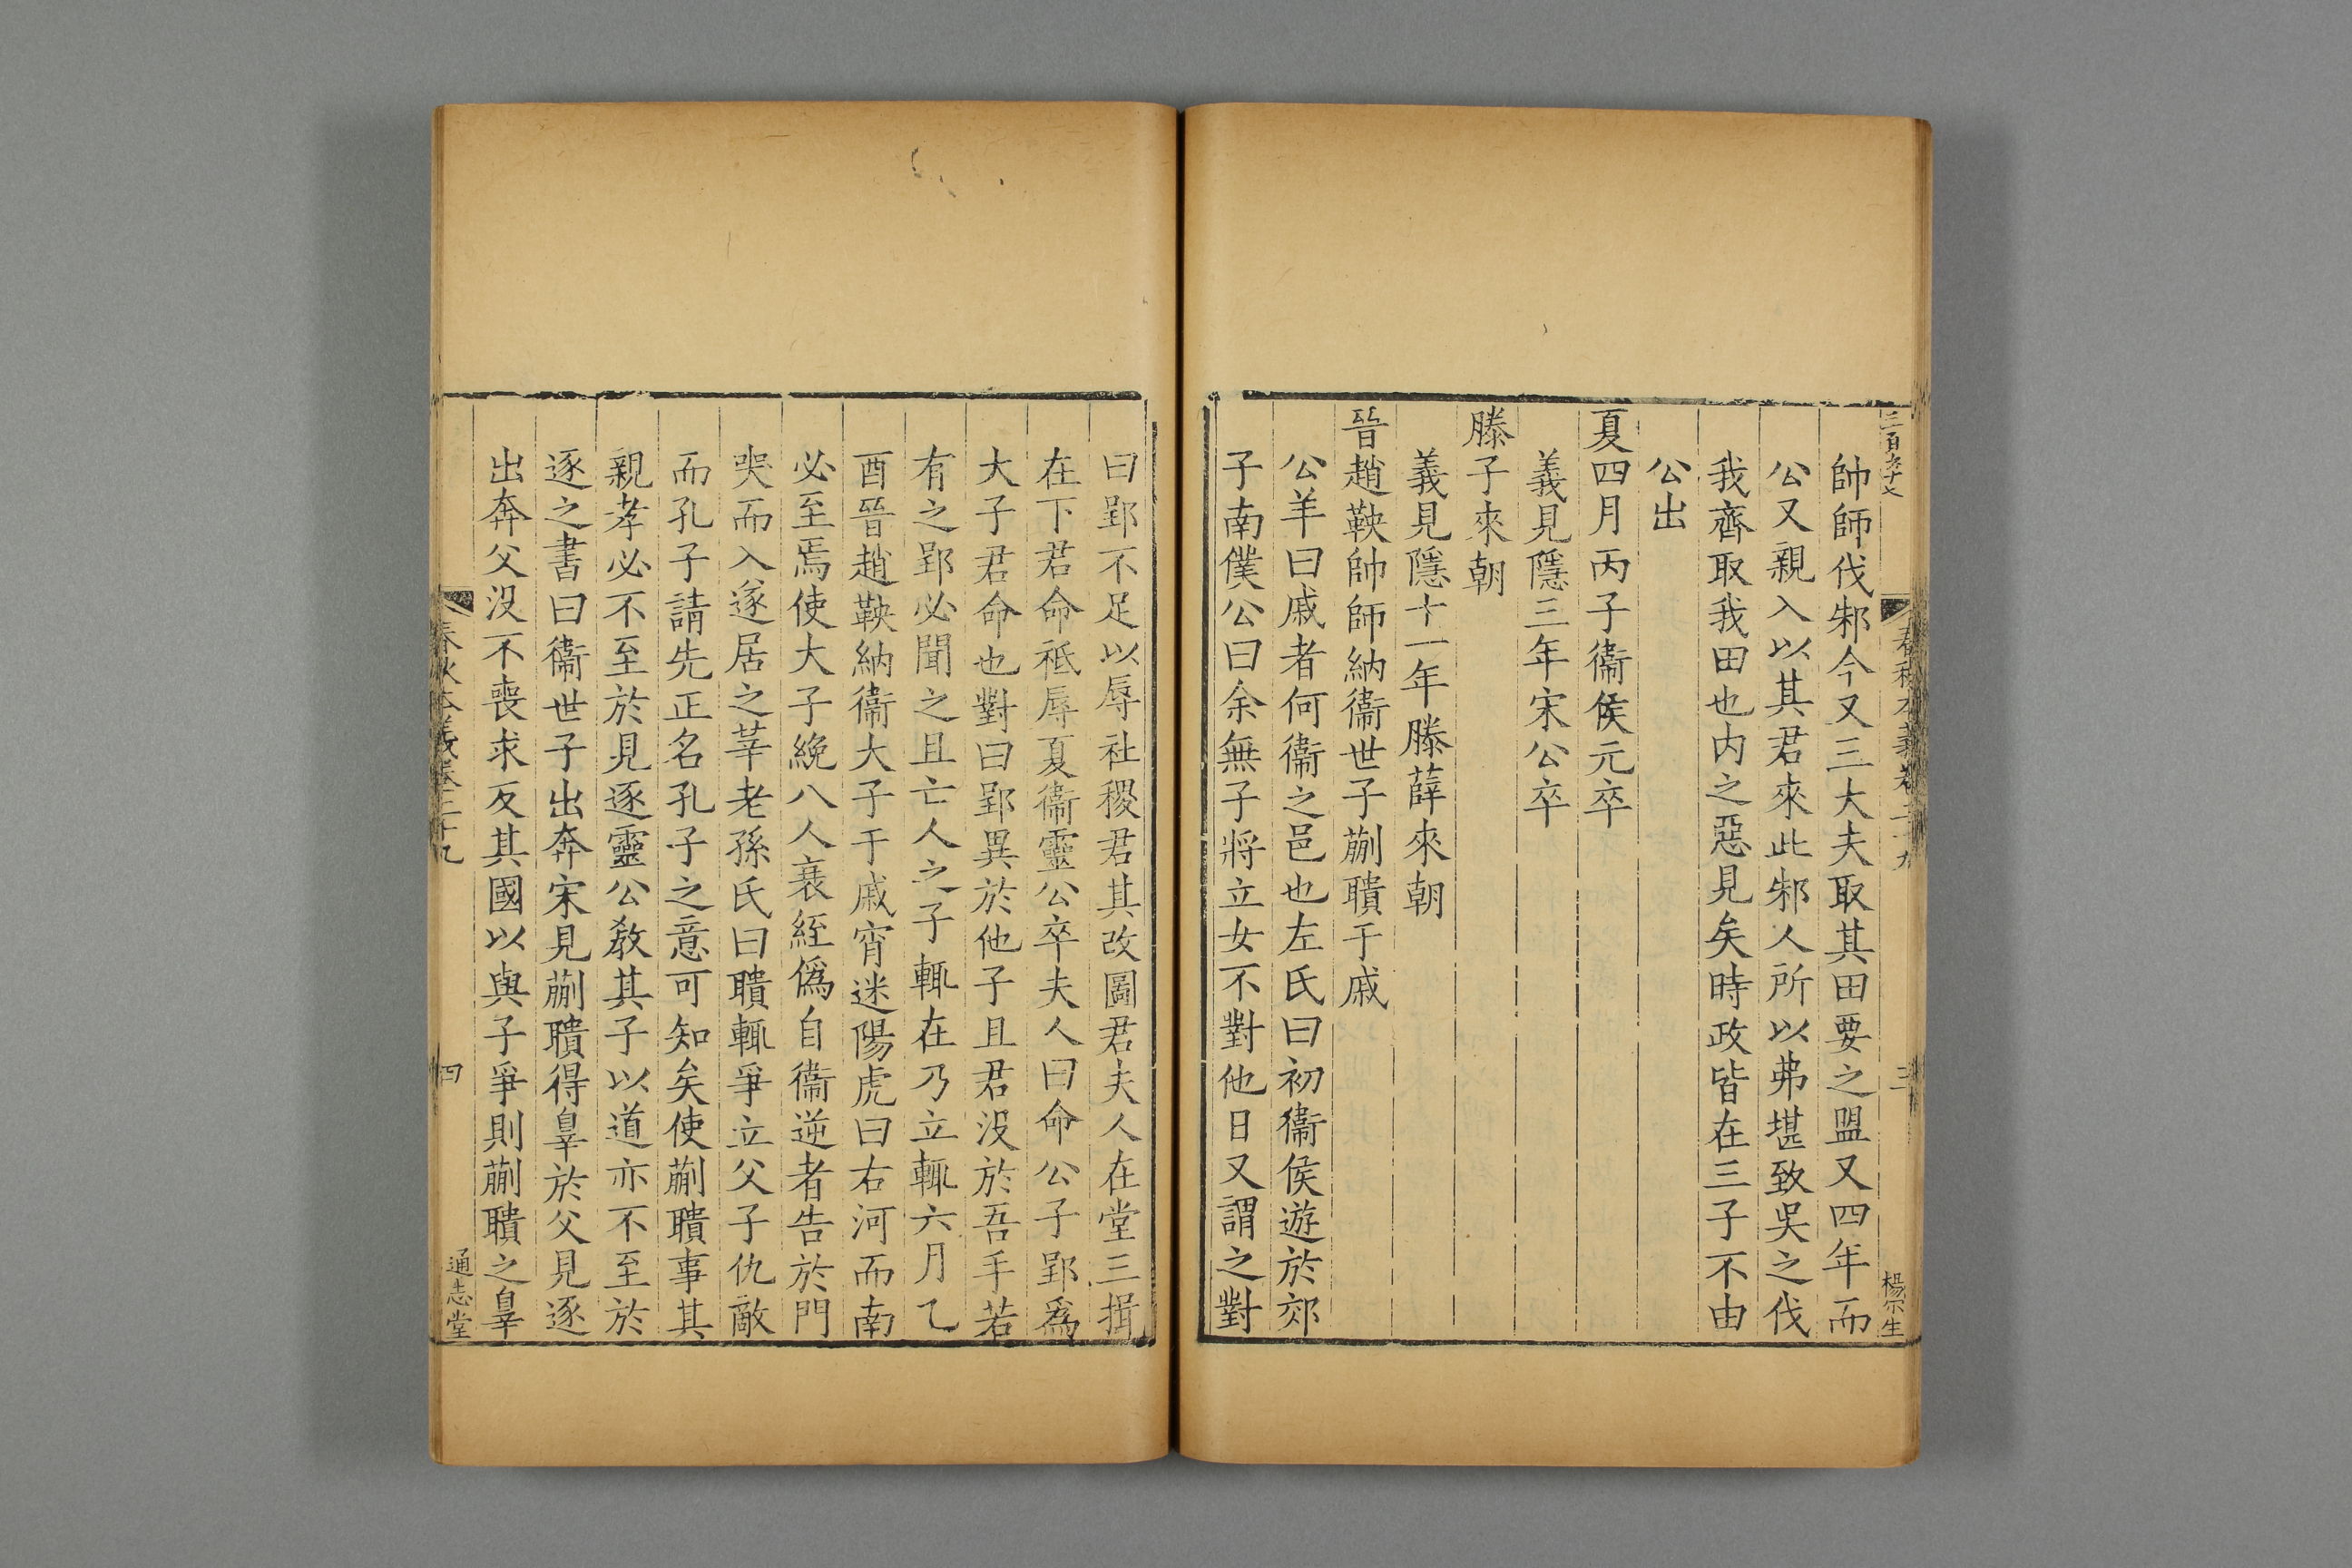 三百九十七
春秋本義卷二十九
三
楊宗生
帥師伐邾今又三大夫取其田要之盟又四年而
公又親入以其君來此邾人所以弗堪致吳之伐
我齊取我田也内之惡見矣時政皆在三子不由
公出
夏四月丙子衞侯元卒
義見隱三年宋公卒
滕子來朝
義見隱十一年滕薛來朝
晉趙鞅帥師納衞世子蒯聵于戚
公羊曰戚者何衞之邑也左氏曰初衞侯遊於郊
子南僕公曰余無子將立女不對他日又謂之對
曰郢不足以辱社稷君其改圖君夫人在堂三揖
在下君命祗辱夏衞靈公卒夫人曰命公子郢爲
大子君命也對曰郢異於他子且君沒於吾手若
有之郢必聞之且亡人之子輒在乃立輒六月乙
酉晉趙鞅納衞大子于戚宵迷陽虎曰右河而南
必至焉使大子絻八人衰絰僞自衞逆者告於門
哭而入遂居之莘老孫氏曰聵輒爭立父子仇敵
而孔子請先正名孔子之意可知矣使蒯聵事其
親孝必不至於見逐靈公敎其子以道亦不至於
逐之書曰衞世子出奔宋見蒯聵得辠於父見逐
出奔父沒不喪求反其國以與子爭則蒯聵之辠
春秋本義卷二十九
四
通志堂